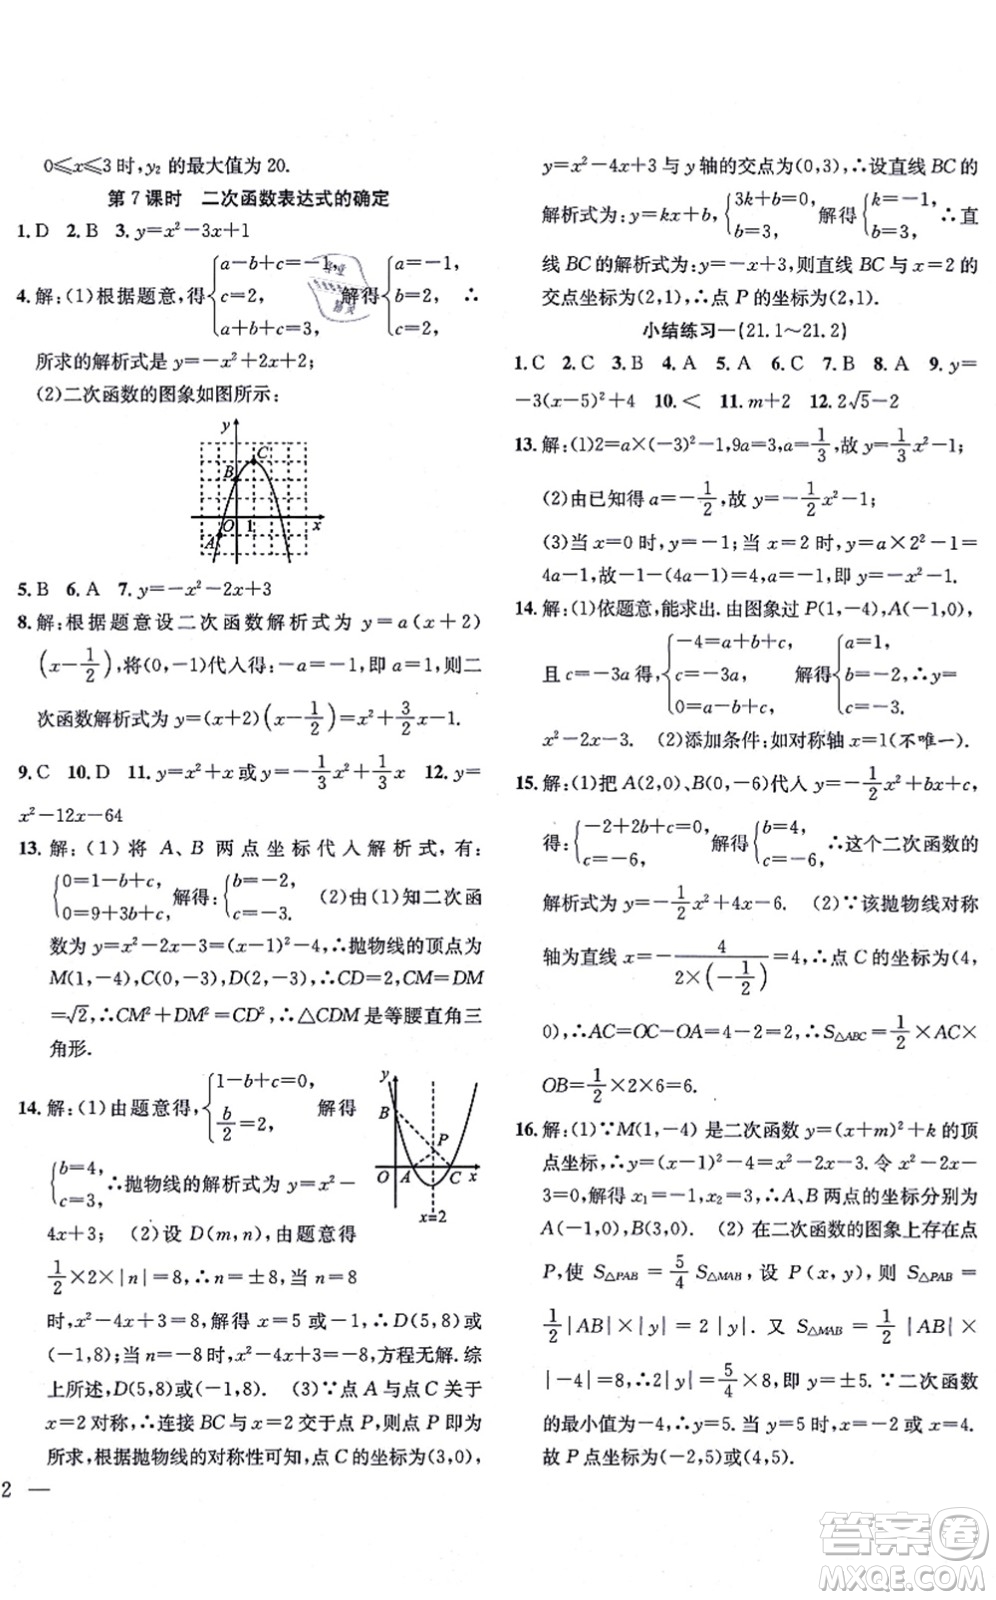 0≤x≤3时,y₂的最大值为20.
第7课时 二次函数表达式的确定
1. D 2. B 3. y=x²-3x+1
4. 解:(1)根据题意,得{a-b+c=-1, c=2, a+b+c=3, 解得{a=-1, b=2, c=2, ∴
所求的解析式是y=-x²+2x+2;
(2)二次函数的图象如图所示:
y
C
B
O 1 x
A
5. B 6. A 7. y=-x²-2x+3
8. 解:根据题意设二次函数解析式为y=a(x+2)
(x-1/2),将(0,-1)代入得:-a=-1,即a=1,则二
次函数解析式为y=(x+2)(x-1/2)=x²+3/2x-1.
9. C 10. D 11. y=x²+x或y=-1/3x²+1/3x 12. y=
x²-12x-64
13. 解:(1)将A、B两点坐标代入解析式,有:
{0=1-b+c, 0=9+3b+c, 解得:{b=-2, c=-3. (2)由(1)知二次函
数为y=x²-2x-3=(x-1)²-4,∴抛物线的顶点为
M(1,-4),C(0,-3),D(2,-3),∴CD=2,CM=DM
=√2,∴CM²+DM²=CD²,∴△CDM是等腰直角三
角形.
14. 解:(1)由题意得,{1-b+c=0, b/2=2, 解得
{b=4, c=3, ∴抛物线的解析式为y=x²-
4x+3; (2)设D(m,n),由题意得
1/2×2×|n|=8,∴n=±8,当n=8
y
B
P
O A C x
x=2
时,x²-4x+3=8,解得x=5或-1,∴D(5,8)或
(-1,8);当n=-8时,x²-4x+3=-8,方程无解.综
上所述,D(5,8)或(-1,8). (3)∵点A与点C关于
x=2对称,∴连接BC与x=2交于点P,则点P即为
所求,根据抛物线的对称性可知,点C的坐标为(3,0),
2 —
y=x²-4x+3与y轴的交点为(0,3),∴设直线BC的
解析式为:y=kx+b,{3k+b=0, b=3, 解得{k=-1, b=3, ∴直
线BC的解析式为:y=-x+3,则直线BC与x=2的
交点坐标为(2,1),∴点P的坐标为:(2,1).
小结练习一(21.1~21.2)
1. C 2. C 3. B 4. A 5. A 6. C 7. B 8. A 9. y=
-3(x-5)²+4 10. < 11. m+2 12. 2√5-2
13. 解:(1)2=a×(-3)²-1,9a=3,a=1/3,故y=1/3x²-1;
(2)由已知得a=-1/2,故y=-1/2x²-1;
(3)当x=0时,y=-1;当x=2时,y=a×2²-1=
4a-1.∵a>0,∴4a-1>-1,即y₂>y₁.
14. 解:(1)依题意,能求出.由图象过P(1,-4),A(-1,0),
且c=-3a得,{-4=a+b+c, c=-3a, 0=a-b+c, 解得{a=1, b=-2, c=-3. ∴y=
x²-2x-3. (2)添加条件:如对称轴x=1(不唯一).
15. 解:(1)把A(2,0)、B(0,-6)代入y=-1/2x²+bx+c,
得:{-2+2b+c=0, c=-6, 解得{b=4, c=-6, ∴这个二次函数的
解析式为y=-1/2x²+4x-6. (2)∵该抛物线对称
轴为直线x=-4/(2×(-1/2))=4,∴点C的坐标为(4,
0),∴AC=OC-OA=4-2=2,∴S△ABC=1/2×AC×
OB=1/2×2×6=6.
16. 解:(1)∵M(1,-4)是二次函数y=(x+m)²+k的顶
点坐标,∴y=(x-1)²-4=x²-2x-3.令x²-2x-3
=0,解得x₁=-1,x₂=3,∴A、B两点的坐标分别为
A(-1,0),B(3,0). (2)在二次函数的图象上存在点
P,使S△PAB=5/4S△MAB,设P(x,y),则S△PAB=
1/2|AB|×|y|=2|y|.又S△MAB=1/2|AB|×
|-4|=8,∴2|y|=5/4×8,即y=±5.∵二次函数
的最小值为-4,∴y=5.当y=5时,x=-2或x=4.
故P点坐标为(-2,5)或(4,5).
答案卷
MXQE.COM